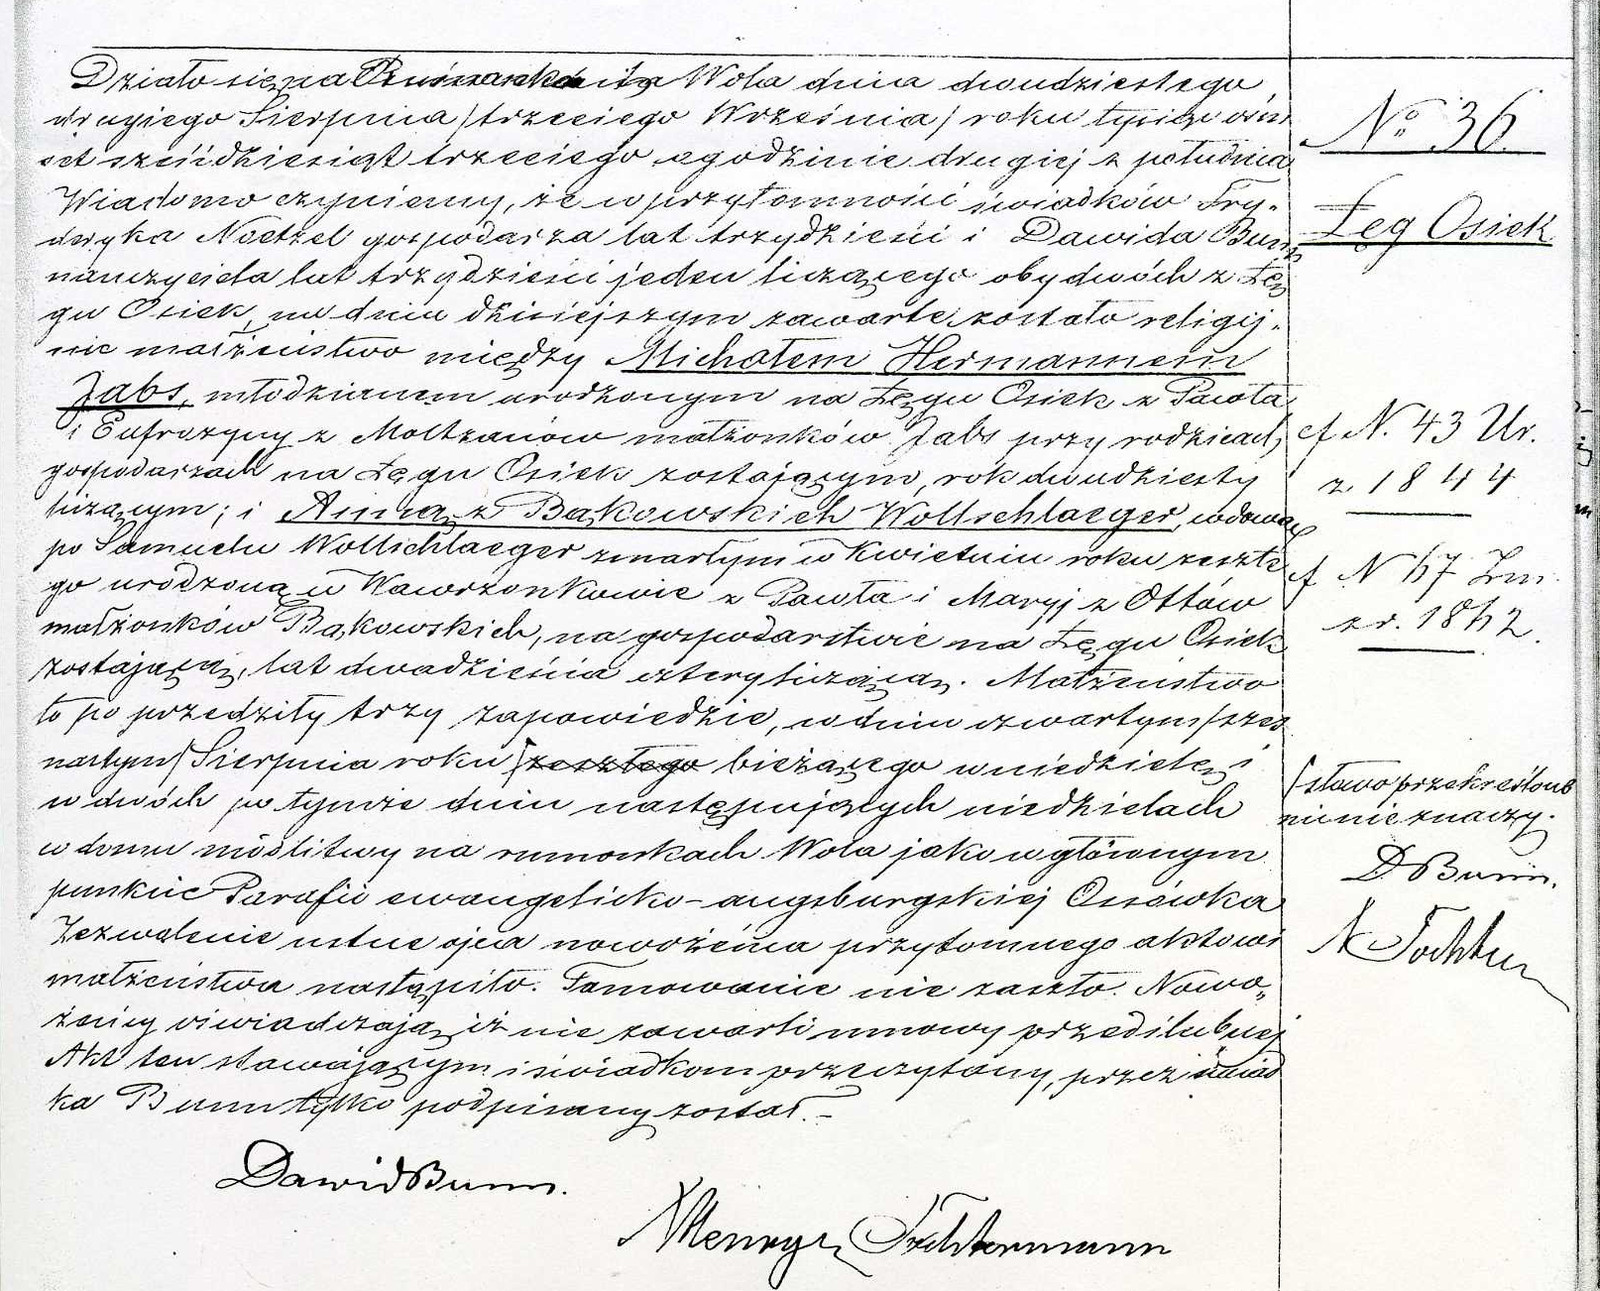 Działo się na Wola dnia dwudziestego
drugiego Sierpnia /trzeciego Września/ roku tysiąc ośm
set sześćdziesiąt trzeciego o godzinie drugiej z południa
Wiadomo czyniemy, że w przytomności świadków Fry„
dryka Noetzel gospodarza lat trzydzieści i Dawida Bunn
nauczyciela lat trzydzieści jeden liczącego obydwóch z Łę
gu Osiek, na dniu dzisiejszym zawarte zostało religij„
nie małżeństwo między Michałem Hermannem
Jabs, młodzianem urodzonym na Łęgu Osiek z Pawła
i Eufrozyny z Moltzanów małżonków Jabs przy rodzicach
gospodarzach na Łęgu Osiek zostającym, rok dwudziesty
liczącym; i Anną z Bąkowskich Wollschlaeger, wdową
po Samuelu Wollschlaeger zmarłym w Kwietniu roku zeszłe
go urodzoną w Wawrzonkowie z Pawła i Maryj z Ottów
małżonków Bąkowskich, na gospodarstwie na Łęgu Osiek
zostającą, lat dwadzieścia cztery liczącą. Małżeństwo
to poprzedziły trzy zapowiedzie, w dniu czwartym /szes
nastym/ Sierpnia roku /zeszłego bieżącego w niedzielę i
w dwóch po tymże dniu następujących niedzielach
w domu modlitwy na rumonkach Wola jako w głównym
punkcie Parafii ewangelicko-augsburgskiej Ossówka
Zezwolenie ustne ojca nowożeńca przytomnego aktowi
małżeństwa nastąpiło. Tamowanie nie zaszło. Nowo„
żeńcy oświadczają, iż nie zawarli umowy przedślubnej
Akt ten stawającym i świadkom przeczytany, przez świad
ka Bunn tylko podpisany został.-
Dawid Bunn.
Henryk Tochtermann
No. 36.
Łęg Osiek
cf N. 43 Ur.
z 1844
cf N 67 Zm.
z r. 1862.
/słowo przekreślone
nic nie znaczy.
D Bunn.